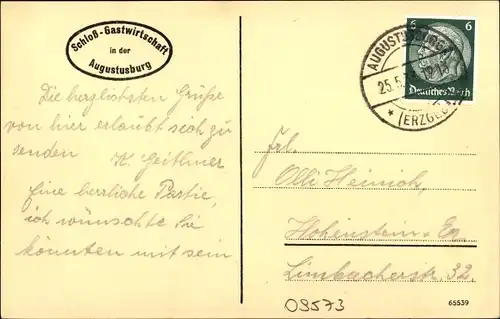 Schloß-Gastwirtschaft
in der
Augustusburg
Die herzlichsten Grüße
von hier erlaubt sich zu
senden
Eine herrliche Partie,
ich wünschte Sie
könnten mit sein
AUGUSTUSBURG
25.5.
* (ERZGEB.)
6 6
Deutsches Reich
Frl.
Olli Heinrich,
Hohenstein-Er.
Limbacherstr. 32.
09573
65539